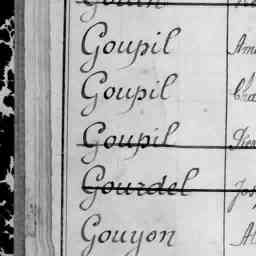 Goupil Am
Goupil Cha
Goupil
Gourdel Jos
Gouyon